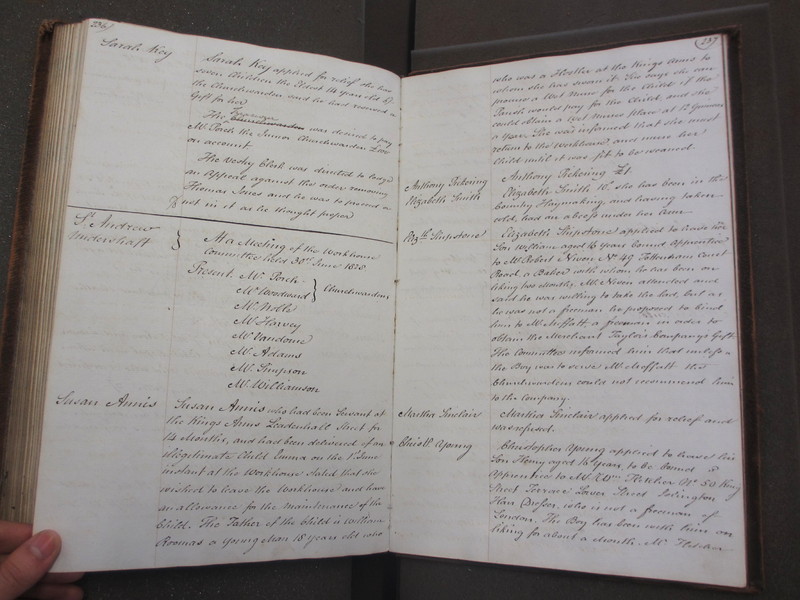 236
Sarah Key
Sarah Key applied for relief she has
seven Children the Eldest 14 years old
the Churchwarden and he had received a
Gift for her
The Churchwarden was desired to pay
Mr. Porch the Junior Churchwarden
on account.
The Vestry Clerk was directed to lodge
an Appeal against the order removing
Thomas Jones and he was to proceed or
not in it as he thought proper
St. Andrew
Undershaft
At a Meeting of the Workhouse
Committee held 30th June 1828
Present Mr. Porch
Mr. Woodward } Churchwardens
Mr. Noble
Mr. Harvey
Mr. Vandome
Mr. Adams
Mr. Simpson
Mr. Williamson
Susan Annis
Susan Annis who had been Servant at
the Kings Arms Leadenhall Street for
14 Months, and had been delivered of an
illegitimate Child Emma on the 1st June
instant at the Workhouse stated that she
wished to leave the Workhouse and have
an allowance for the maintenance of the
Child. The Father of the Child is William
a Young Man 18 Years old who
237
who was a Hostler at the Kings Arms to
whom she has sworn it. She says she can
procure a Wet Nurse for the Child if the
Parish would pay for the Child, and she
could obtain a Wet Nurses place at 12 Guineas
a Year. She was informed that she must
return to the Workhouse, and nurse her
Child until it was fit to be weaned.
Anthony Pickering
Anthony Pickering £1.
Elizabeth Smith
Elizabeth Smith 10/. she has been in the
Country Haymaking, and having taken
cold, had an abcess under her Arm
Elizth. Shipstone
Elizabeth Shipstone applied to have her
Son William aged 15 years bound apprentice
to Mr. Robert Niven No. 49 Tottenham Court
Road, a Baker with whom he has been on
liking two Months. Mr. Niven attended and
said he was willing to take the lad, but as
he was not a freeman he proposed to bind
him to Mr. Moffatt, a freeman in order to
obtain the Merchant Taylors Companys Gift.
The Committee informed him that unless
the Boy was to serve Mr. Moffatt the
Churchwardens could not recommend him
to the Company.
Martha Sinclair
Martha Sinclair applied for relief and
was refused.
Chrisr. Young
Christopher Young applied to have his
Son Henry aged 15 years, to be bound
Apprentice to Mr. Wm. Fletcher No. 50 King
Street Terrace Lower Street Islington
Hair Dresser, who is not a freeman of
London. The Boy has been with him on
liking for about a Month. Mr. Fletcher